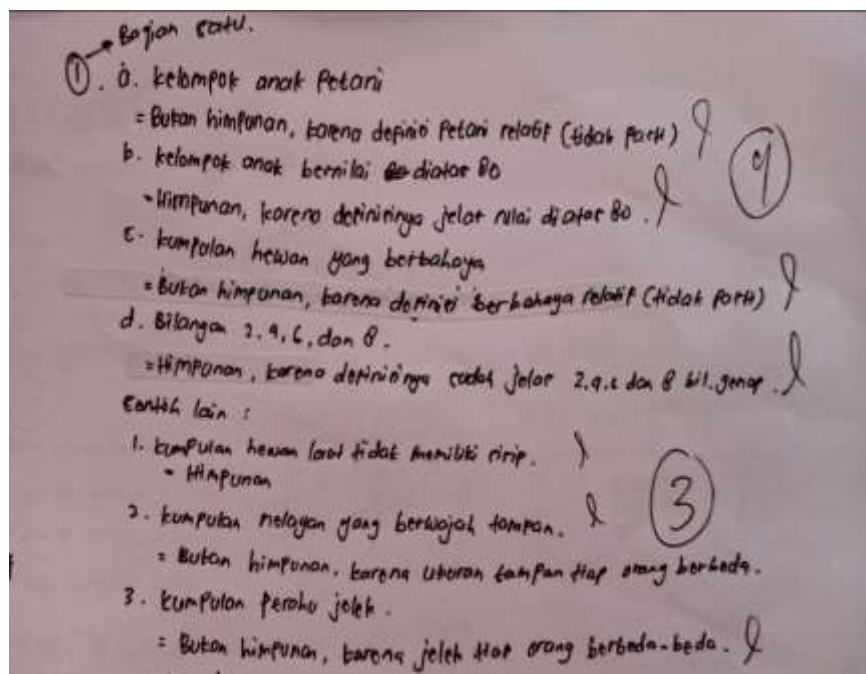 Bagian satu.
①. a. kelompok anak Petani
= Bukan himpunan, karena definisi Petani relatif (tidak Pasti)
b. kelompok anak bernilai diatas 80
= Himpunan, karena definisinya jelas nilai diatas 80.
c. kumpulan hewan yang berbahaya
= Bukan himpunan, karena definisi berbahaya relatif (tidak Pasti)
d. Bilangan 2, 4, 6, dan 8.
= Himpunan, karena definisinya sudah jelas 2, 4, 6 dan 8 bil. genap.
Contoh lain :
1. kumpulan hewan laut tidak memiliki sirip.
= Himpunan
2. kumpulan nelayan yang berwajah tampan.
= Bukan himpunan, karena ukuran tampan tiap orang berbeda.
3. kumpulan Perahu jelek.
= Bukan himpunan, karena jelek tiap orang berbeda-beda.
4
3